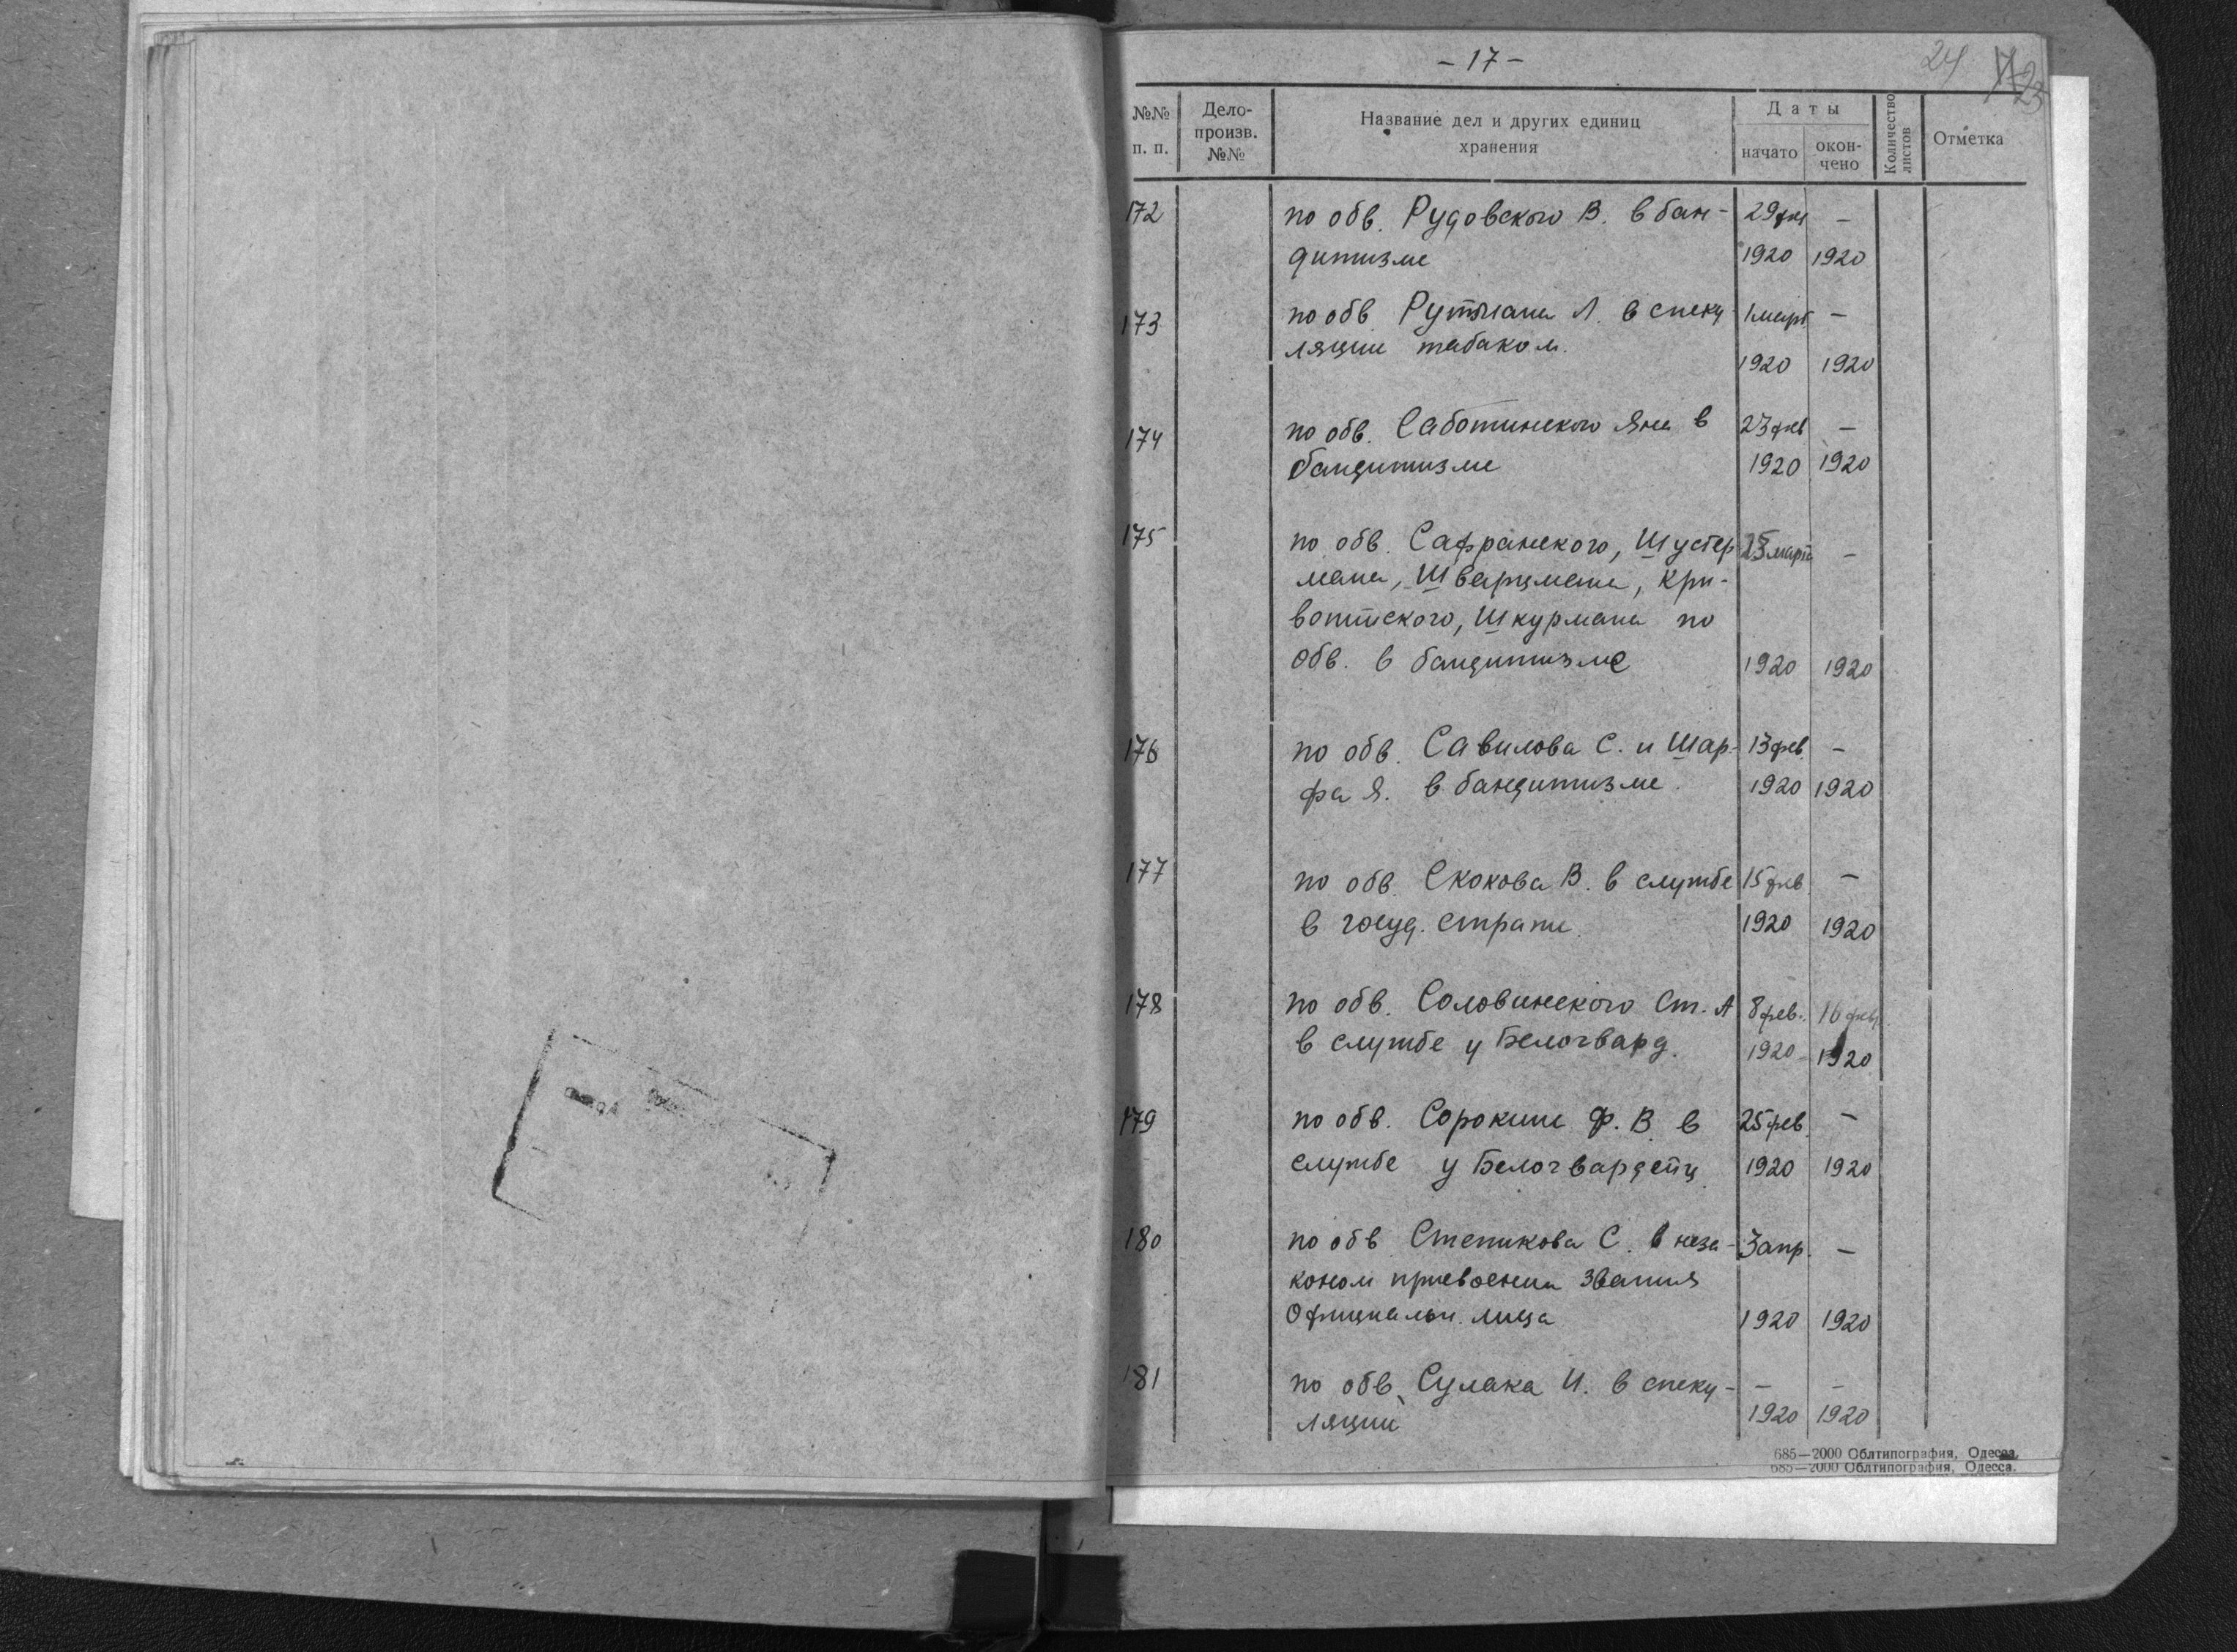 - 17 -
24
23
№№ п. п.
Дело-произв. №№
Название дел и других единиц хранения
Даты
начато
окон-чено
Количество листов
Отметка
172 по обв. Рудовского В. в бан- 29 янв —
дитизме 1920 1920
173 по обв. Рутмана Л. в спеку- 1 март —
ляции табаком. 1920 1920
174 по обв. Саботинского Яна в 23 фев —
бандитизме 1920 1920
175 по обв. Сафранского, Шустер 25 марта —
мана, Шварцмана, Кри-
вотского, Шкурмана по
обв. в бандитизме 1920 1920
176 по обв. Савилова С. и Шар- 13 фев —
фа Я. в бандитизме. 1920 1920
177 по обв. Скокова В. в службе 15 фев. —
в госуд. страже. 1920 1920
178 по обв. Соловинского Ст. А 8 фев. 16 фев.
в службе у Белогвард. 1920 1920
179 по обв. Сорокина Ф. В. в 25 фев. —
службе у Белогвардейц. 1920 1920
180 по обв. Степикова С. в неза- 3 апр. —
коном присвоении звания
официальн. лица 1920 1920
181 по обв. Сулака И. в спеку- — —
ляции 1920 1920
685—2000 Облтипография, Одесса.
685—2000 Облтипография, Одесса.